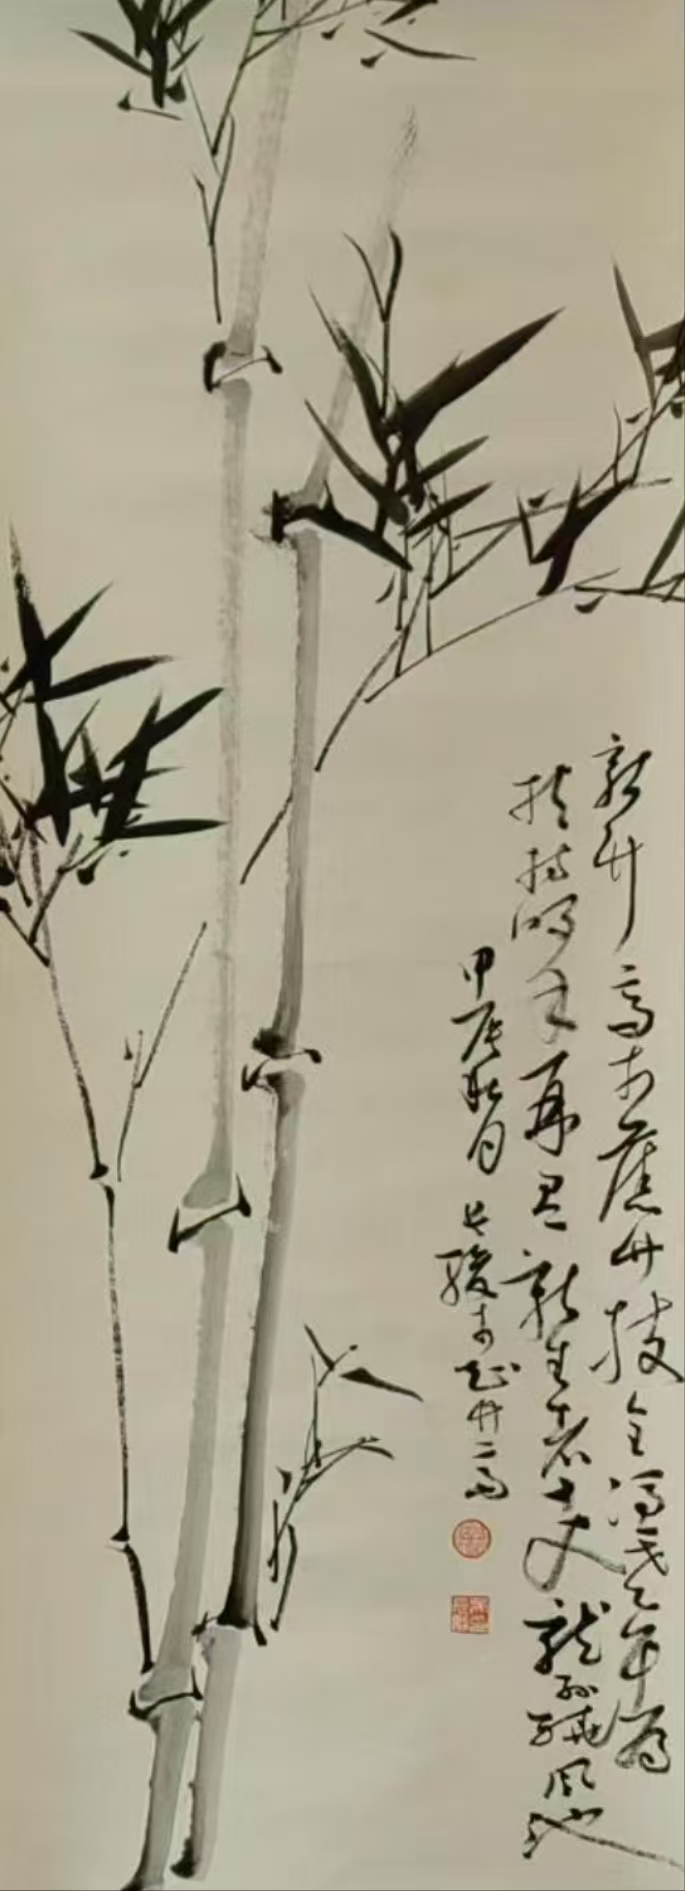 新竹高於舊竹枝全憑老幹為
扶持明年再有新生者十丈龍孫繞鳳池
甲辰秋月